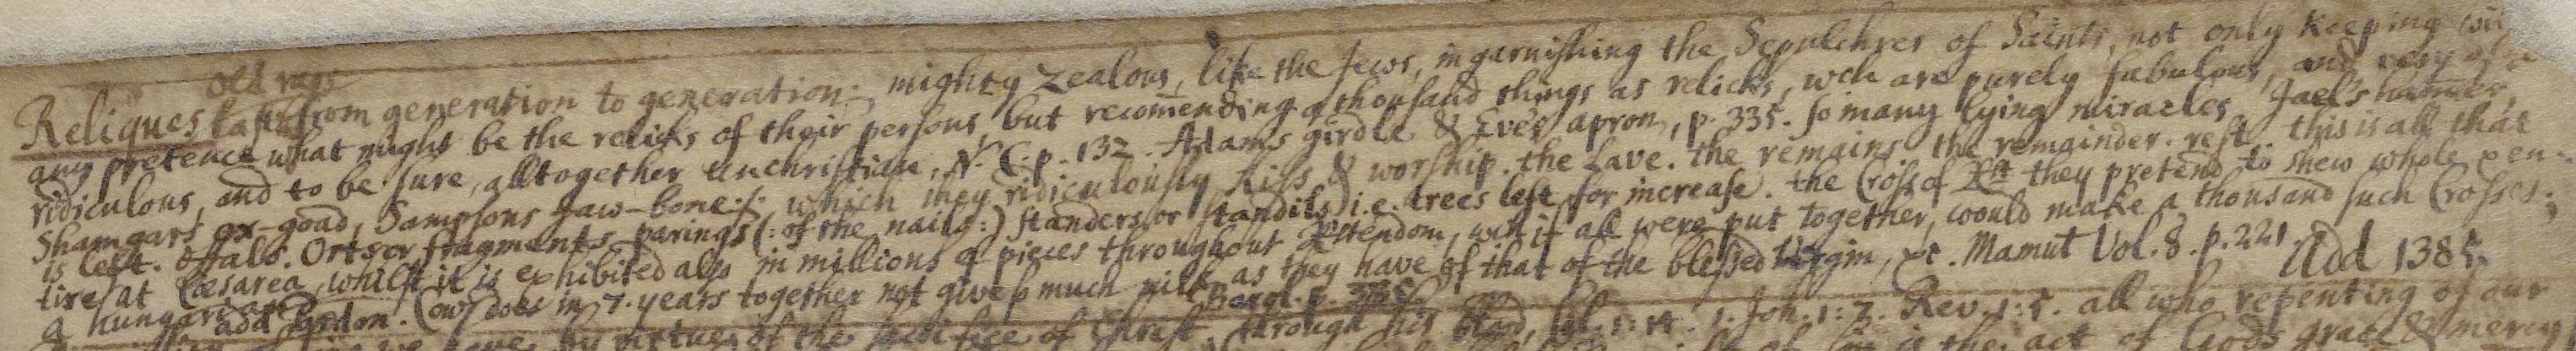 old rags
Reliques last from generation to generation; mighty zealous, like the Jews, in garnishing the Sepulchres of Saints, not only keeping
any pretence what might be the relicks of their persons, but recomending a thousand things as relicks, wch are purely fabulous, and very
ridiculous, and to be sure, alltogether Unchristian, N. C. p. 132. Adams girdle & Eves apron, p. 335. so many lying miracles Jael's hammer,
Shamgars ox-goad, Sampsons Jaw-bone :/: which they ridiculously kiss & worship. the Lave. the remains the remainder. rest this is all that
is left. offals. Orts or fragments parings (: of the nails :) standers or standils i.e. trees left for increase. the Cross of Xst they pretend to shew whole &
tire at Cæsarea, whilst it is exhibited also in millions of pieces throughout Xstendom, wch if all were put together, would make a thousand such Crosses;
a hungari add Gordon. Cows does in 7. years together not give so much milk as they have of that of the blessed Virgin, &c. Mamut Vol. 8. p. 221. Add 1385.
by virtue of the sacrifice of Christ, through his blood, 1. Joh. 1: 7. Rev. 1: 5. all who repenting of our
is the act of Gods grace & mercy